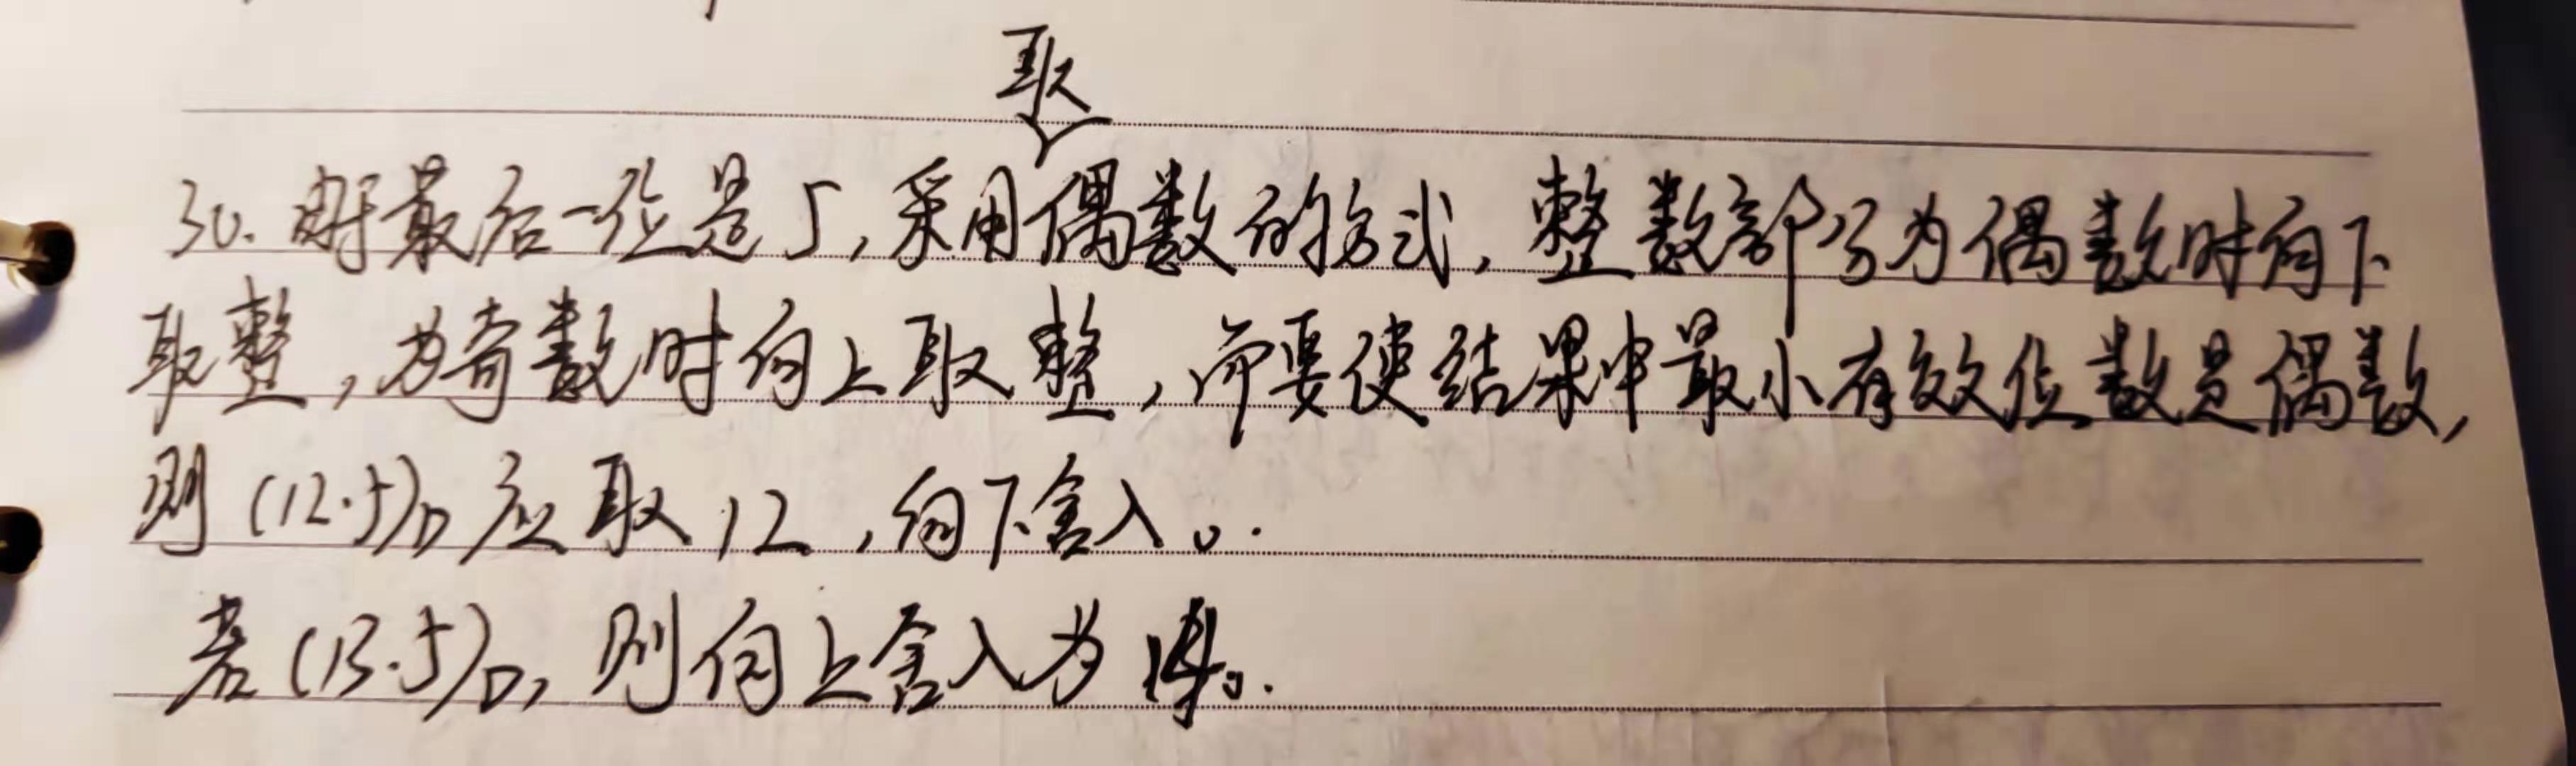 取
30. 由于最后一位是5,采用偶数的方式,整数部分为偶数时向下
取整,为奇数时向上取整,而要使结果中最小有效位数是偶数,
则(12.5)D应取12,向下舍入。
若(13.5)D,则向上舍入为14。